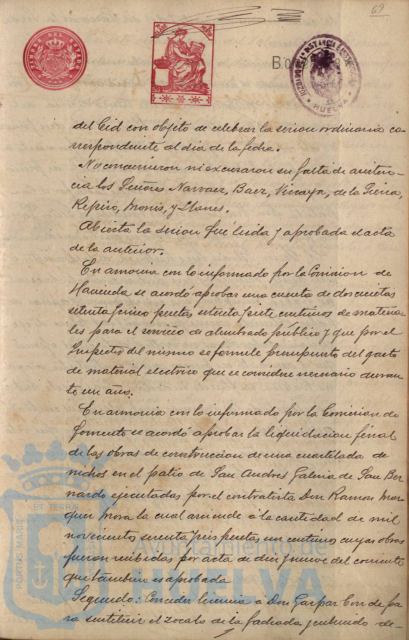 69
HUELVA
del Cid con objeto de celebrar la sesion ordinaria co-
rrespondiente al dia de la fecha.
No concurrieron ni excusaron su falta de asisten-
cia los Señores Narvaez, Baez, Vizcaya, de la Peña,
Repiso, Monis, y Llanes.
Abierta la sesion fue leida y aprobada el acta
de la anterior.
En armonia con lo informado por la Comision de
Hacienda se acordó aprobar una cuenta de doscientas
setenta y cinco pesetas setenta y siete centimos de materia-
les para el servicio de alumbrado público y que por el
Inspector del mismo se formule presupuesto del gasto
de material electrico que se considere necesario duran-
te un año.
En armonia con lo informado por la Comision de
Fomento se acordó aprobar la liquidacion final
de las obras de construccion de una cuartelada de
nichos en el patio de San Andres Galeria de San Ber-
nardo ejecutadas por el contratista Don Ramon Mar-
quez Mora la cual asciende á la cantidad de mil
novecientas sesenta y tres pesetas un centimo cuyas obras
fueron recibidas por acta de diez y nueve del corriente
que tambien es aprobada
Segundo: Conceder licencia a Don Gaspar de pa-
ra sustituir el zocalo de la fachada y cubriendo de-
PORTUS MARIS ET TERRAE
Ayuntamiento de
HUELVA